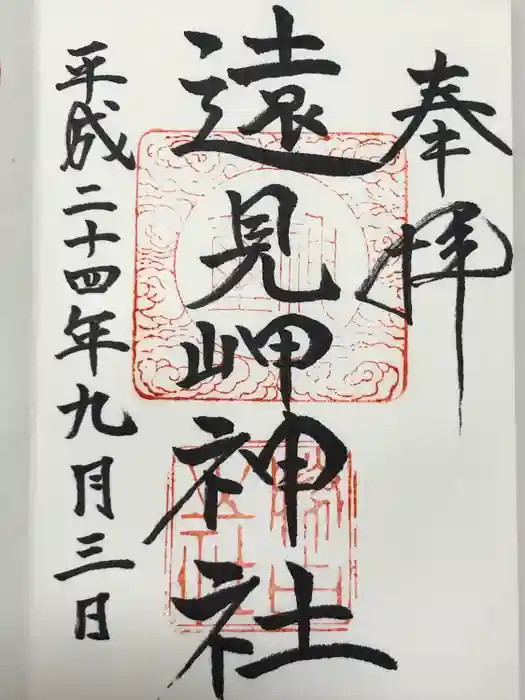 奉拝
遠見岬神社
平成二十四年九月三日